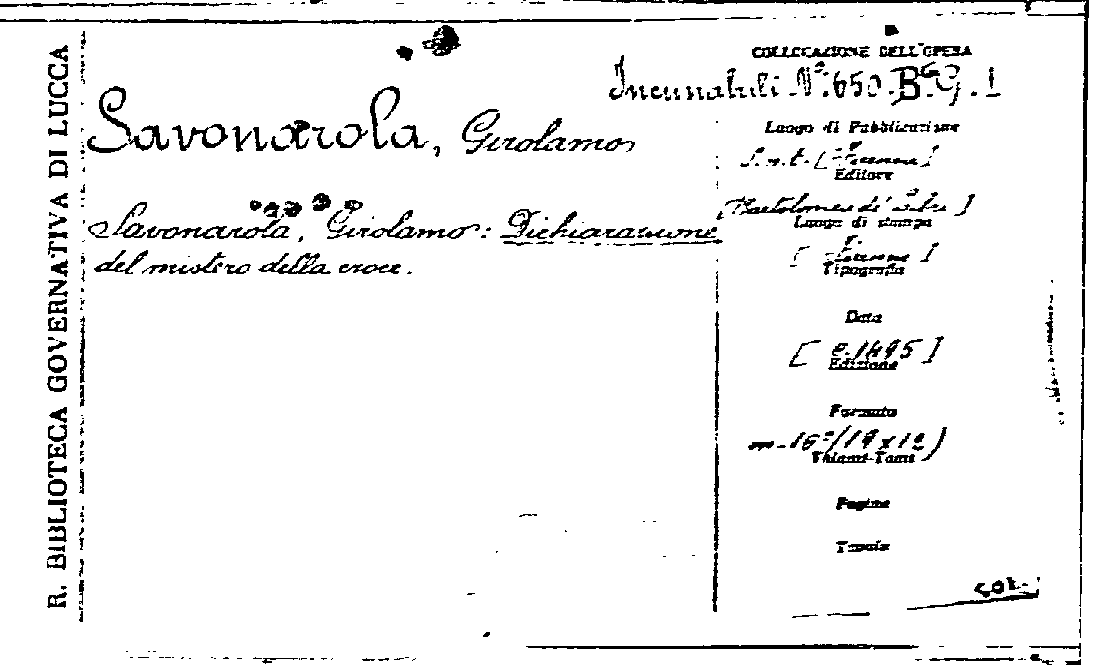 R. BIBLIOTECA GOVERNATIVA DI LUCCA
COLLOCAZIONE DELL'OPERA
Incunabuli Nº. 650. Bª G. 1
Savonarola, Girolamo
Savonarola, Girolamo: Dichiarazione
del mistero della croce.
Luogo di Pubblicazione
S. n. t. [Firenze]
Editore
[Bartolomeo de' Libri]
Luogo di stampa
[Firenze]
Tipografia
Data
[c. 1495]
Edizione
Formato
in-16º/19 x 12)
Volumi-Tomi
Pagine
Tavole